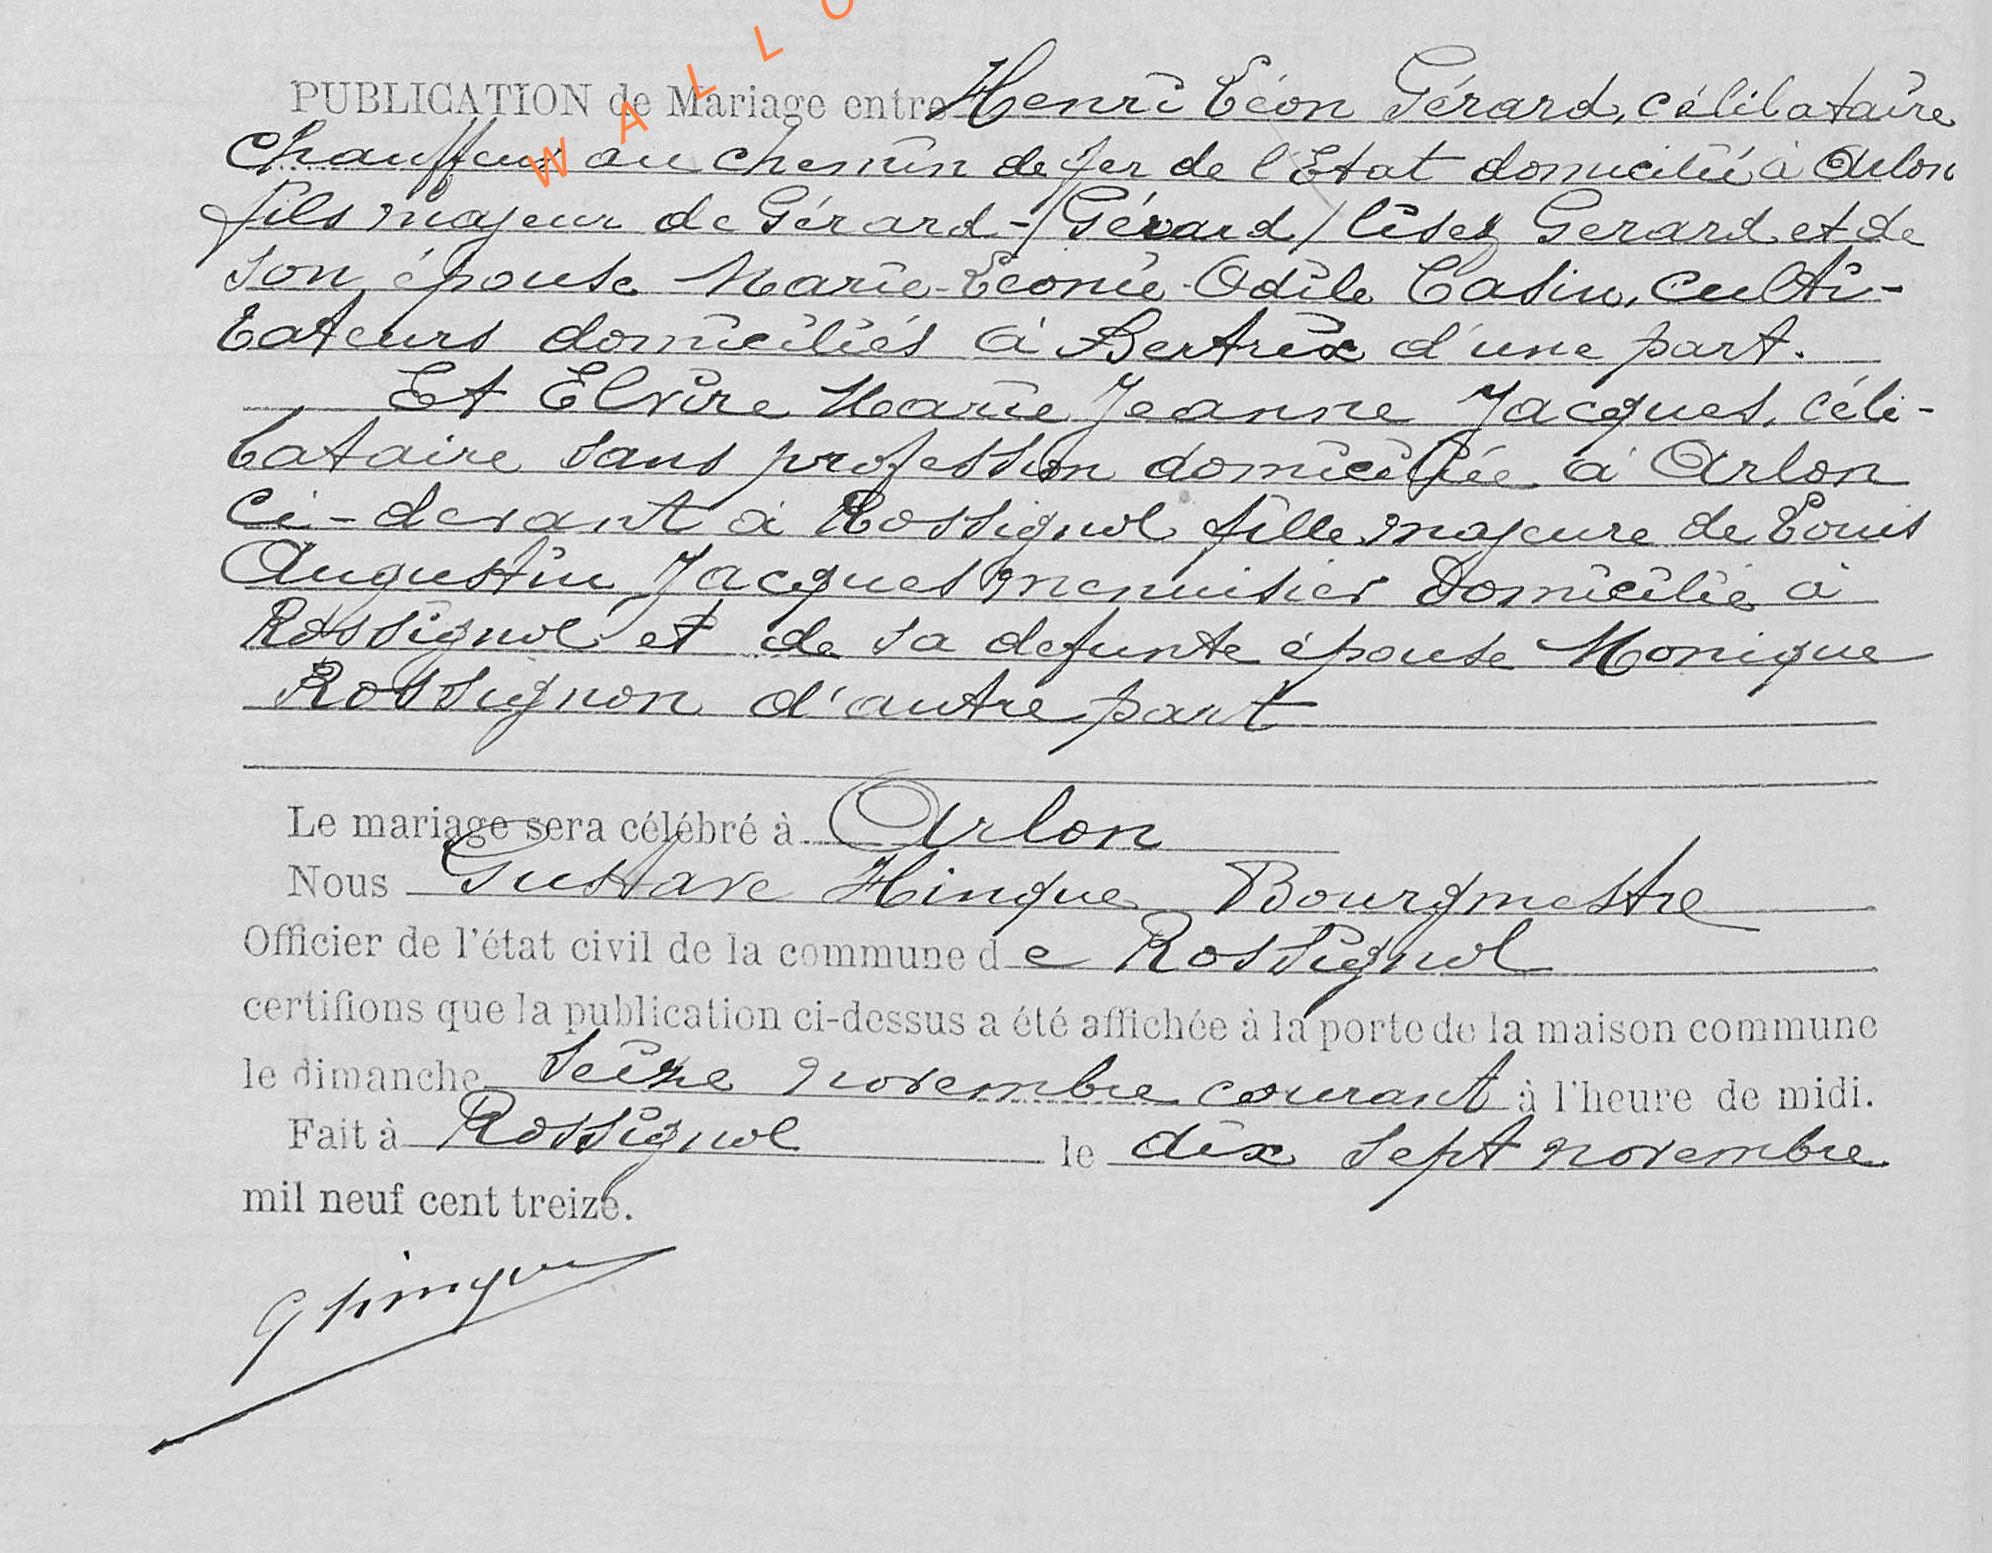 W A L L O
PUBLICATION de Mariage entre Henri Léon Gérard, célibataire
Chauffeur au chemin de fer de l'Etat domicilié à Arlon
fils majeur de Gérard-/Gérard/ lisez Gerard et de
son épouse Marie-Léonie-Odile Casin, culti-
vateurs domiciliés à Bertrix d'une part.
Et Elvire Marie Jeanne Jacques, céli-
bataire sans profession domiciliée à Arlon
ci-devant à Rossignol fille majeure de Louis
Augustin Jacques menuisier domicilié à
Rossignol et de sa defunte épouse Monique
Rossignon d'autre part
Le mariage sera célébré à Arlon
Nous Gustave Hinque Bourgmestre
Officier de l'état civil de la commune de Rossignol
certifions que la publication ci-dessus a été affichée à la porte de la maison commune
le dimanche seize novembre courant à l'heure de midi.
Fait à Rossignol le dix sept novembre
mil neuf cent treize.
G Hinque